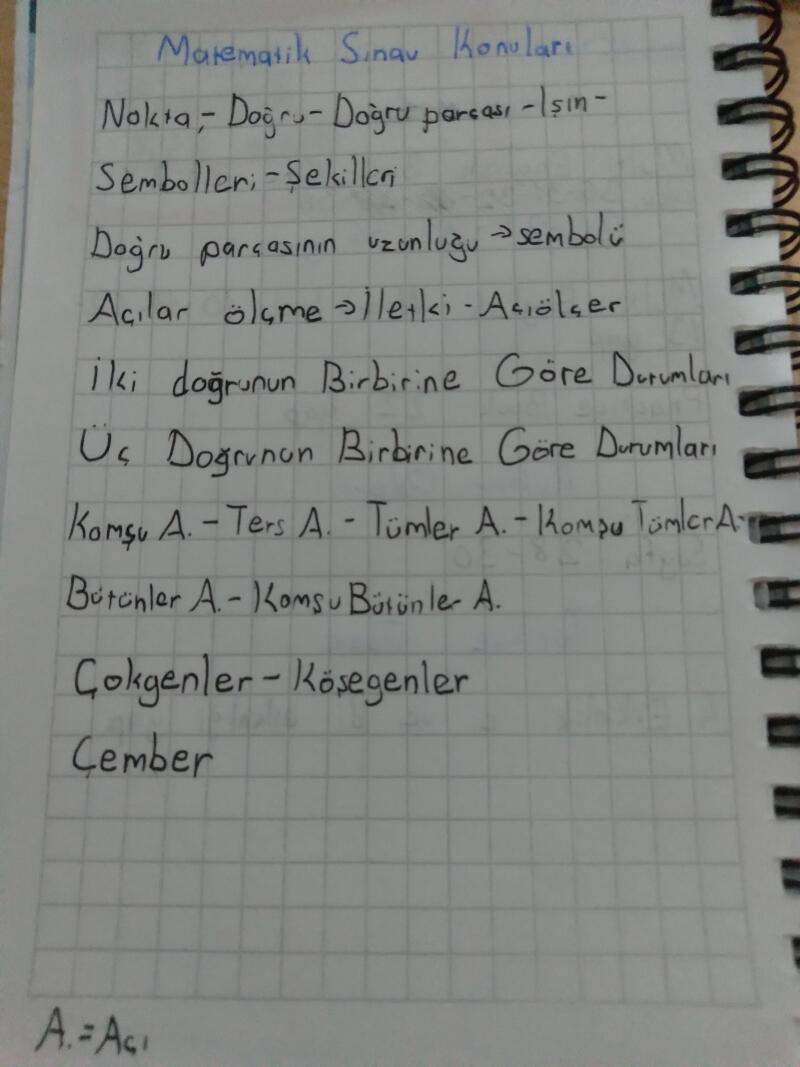 Matematik Sınav Konuları
Nokta,- Doğru- Doğru parçası -Işın-
Sembolleri,-Şekilleri
Doğru parçasının uzunluğu →sembolü
Açılar ölçme →İletki - Açıölçer
İki doğrunun Birbirine Göre Durumları
Üç Doğrunun Birbirine Göre Durumları
Komşu A. - Ters A. - Tümler A. - Komşu Tümler A.-
Bütünler A. - Komşu Bütünler A.
Çokgenler - Köşegenler
Çember
A. = Açı